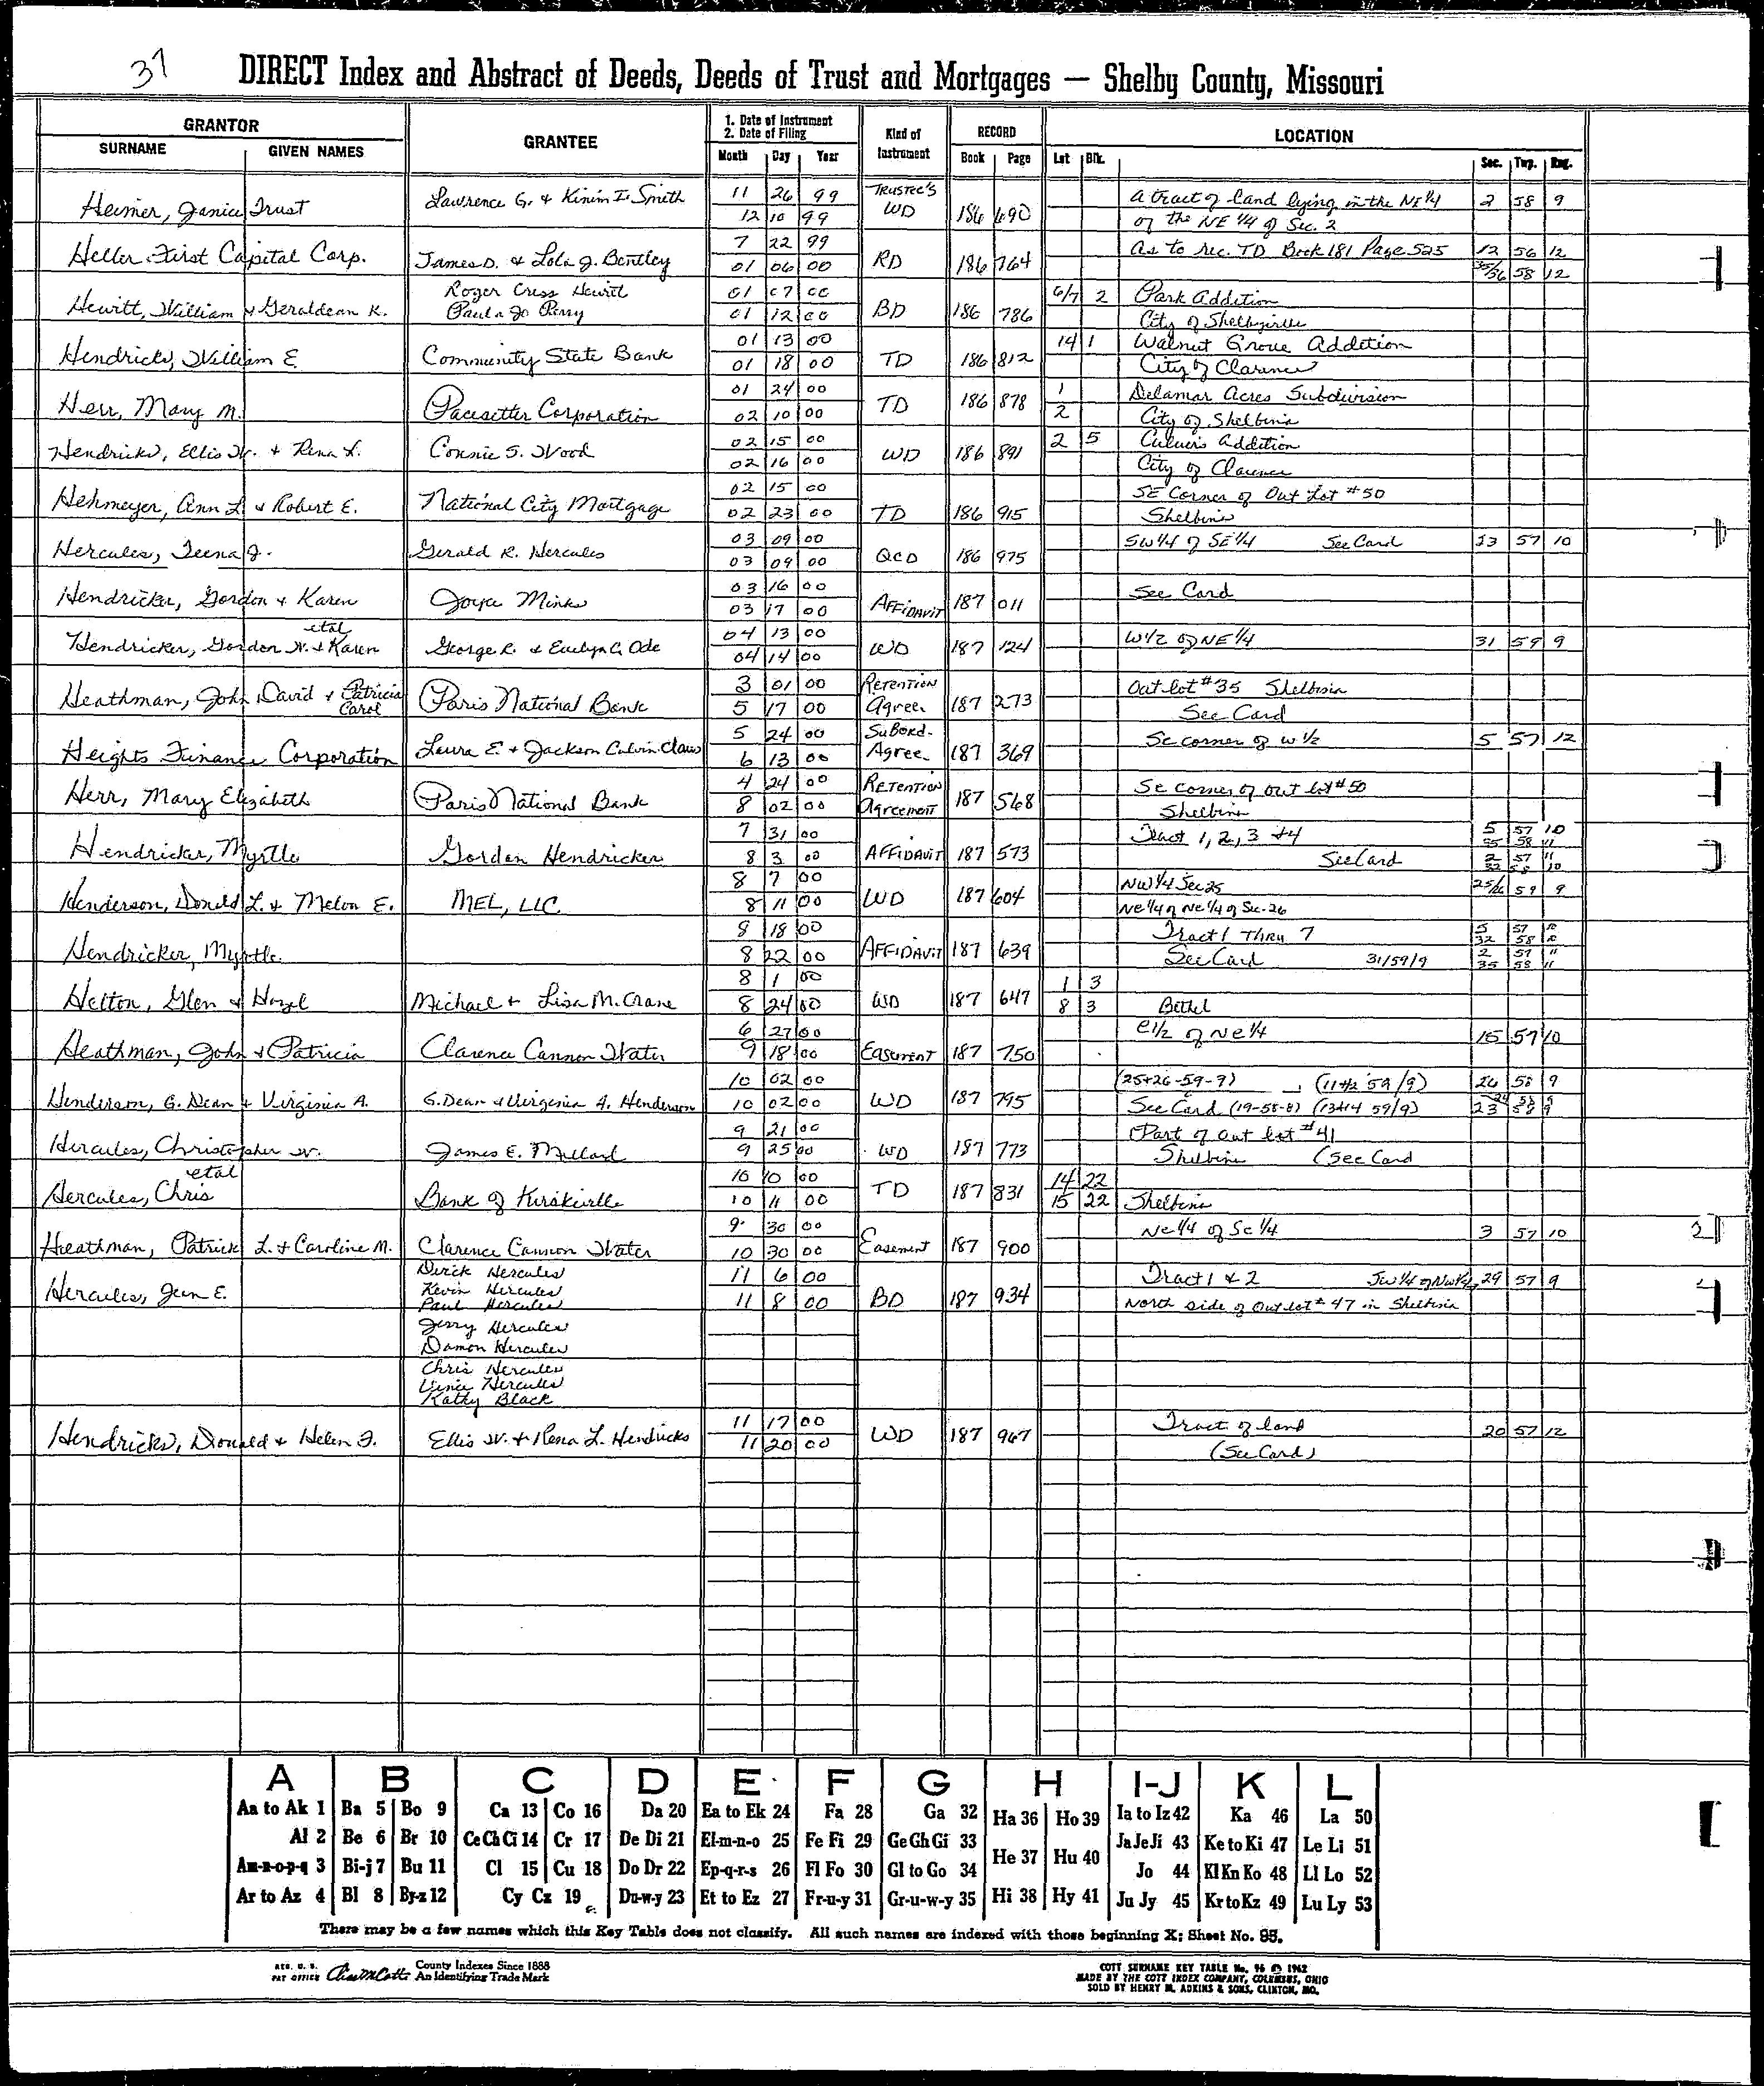 37
DIRECT Index and Abstract of Deeds, Deeds of Trust and Mortgages — Shelby County, Missouri
GRANTOR
SURNAME GIVEN NAMES
GRANTEE
1. Date of Instrument
2. Date of Filing
Month Day Year
Kind of Instrument
RECORD
Book Page
LOCATION
Lot Blk. Sec. Twp. Rng.
Heimer, Janice Trust Lawrence G. & Kinim I. Smith 11 26 99 TRUSTEE'S A tract of land lying in the NE 1/4 2 58 9
12 10 99 WD 186 690 of the NE 1/4 of Sec. 2
Heller First Capital Corp. James D. & Lola J. Bentley 7 22 99 RD 186 764 as to rec. TD Book 181 Page 525 12 56 12
01 06 00 35/36 58 12
Hewitt, William & Geraldean K. Roger Criss Hewitt 01 07 00 BD 186 786 6/7 2 Park Addition
Paula Jo Perry 01 12 00 City of Shelbyville
Hendricks, William E. Community State Bank 01 13 00 TD 186 812 14 1 Walnut Grove Addition
01 18 00 City of Clarence
Herr, Mary M. Pacesetter Corporation 01 24 00 TD 186 878 1 Delamar Acres Subdivision
02 10 00 2 City of Shelbina
Hendricks, Ellis W. & Rena L. Connie S. Wood 02 15 00 WD 186 891 2 5 Culver's Addition
02 16 00 City of Clarence
Hehmeyer, Ann L. & Robert E. National City Mortgage 02 15 00 TD 186 915 SE Corner of Out Lot #50
02 23 00 Shelbina
Hercules, Teena J. Gerald R. Hercules 03 09 00 QCD 186 975 SW 1/4 of SE 1/4 See Card 13 57 10
03 09 00
Hendricker, Gordon & Karen Joyce Minks 03 16 00 AFFIDAVIT 187 011 See Card
03 17 00
Hendricker, Gordon W. & Karen etal George R. & Evelyn C. Ode 04 13 00 WD 187 124 W 1/2 of NE 1/4 31 59 9
04 14 00
Heathman, John David & Patricia Carol Paris National Bank 3 01 00 RETENTION Agree. 187 273 Out lot #35 Shelbina
5 17 00 See Card
Heights Finance Corporation Laura E. & Jackson Calvin Claus 5 24 00 Subord. Agree. 187 369 Se corner of W 1/2 5 57 12
6 13 00
Herr, Mary Elizabeth Paris National Bank 4 24 00 RETENTION Agreement 187 568 Se corner of out lot #50
8 02 00 Shelbina
Hendricker, Myrtle Gordon Hendricker 7 31 00 AFFIDAVIT 187 573 Tract 1, 2, 3 & 4 5 57 10
35 58 11
8 3 00 See Card 2 57 11
32 58 10
Henderson, Donald L. & Melva E. MEL, LLC. 8 7 00 WD 187 604 NW 1/4 Sec 25 25/26 59 9
8 11 00 Ne 1/4 of Ne 1/4 of Sec. 26
Hendricker, Myrtle 8 18 00 AFFIDAVIT 187 639 Tract 1 THRU 7 5 57 10
32 58 10
8 22 00 See Card 31/59/9 2 57 11
35 58 11
Helton, Glen & Hazel Michael & Lisa M. Crane 8 1 00 WD 187 647 1 3
8 24 00 8 3 Bethel
Heathman, John & Patricia Clarence Cannon Water 6 27 00 Easement 187 750 E 1/2 of Ne 1/4 15 57 10
9 18 00
Henderson, G. Dean & Virginia A. G. Dean & Virginia A. Henderson 10 02 00 WD 187 795 (25+26-59-9) (11+12 59/9) 26 58 9
10 02 00 See Card (19-58-8) (13+14 59/9) 23 58 9
24 58 9
Hercules, Christopher W. etal James E. Millard 9 21 00 WD 187 773 Part of out lot #41
9 25 00 Shelbina (See Card
Hercules, Chris Bank of Kirksville 10 10 00 TD 187 831 14 22
10 11 00 15 22 Shelbina
Heathman, Patrick L. & Caroline M. Clarence Cannon Water 9 30 00 Easement 187 900 Ne 1/4 of Se 1/4 3 57 10
10 30 00
Hercules, Jean E. Dirck Hercules 11 6 00 BD 187 934 Tract 1 & 2 SW 1/4 of NW 1/4, 29 57 9
Kevin Hercules 11 8 00 North side of Out lot #47 in Shelbina
Paul Hercules
Jerry Hercules
Damon Hercules
Chris Hercules
Vince Hercules
Kathy Black
Hendricks, Donald & Helen F. Ellis W. & Rena L. Hendricks 11 17 00 WD 187 967 Tract of land 20 57 12
11 20 00 (See Card)
A B C D E F G H I-J K L
Aa to Ak 1 Ba 5 Bo 9 Ca 13 Co 16 Da 20 Ea to Ek 24 Fa 28 Ga 32 Ha 36 Ho 39 Ia to Iz 42 Ka 46 La 50
Al 2 Be 6 Br 10 Ce Ch Ci 14 Cr 17 De Di 21 El-m-n-o 25 Fe Fi 29 Ge Gh Gi 33 He 37 Hu 40 Ja Je Ji 43 Ke to Ki 47 Le Li 51
Am-n-o-p-q 3 Bi-j 7 Bu 11 Cl 15 Cu 18 Do Dr 22 Ep-q-r-s 26 Fl Fo 30 Gl to Go 34 Jo 44 Kl Kn Ko 48 Ll Lo 52
Ar to Az 4 Bl 8 By-z 12 Cy Cz 19 Du-w-y 23 Et to Ez 27 Fr-u-y 31 Gr-u-w-y 35 Hi 38 Hy 41 Ju Jy 45 Kr to Kz 49 Lu Ly 53
There may be a few names which this Key Table does not classify. All such names are indexed with those beginning X; Sheet No. 95.
REG. U. S. PAT OFFICE
County Indexes Since 1888
An Identifying Trade Mark
COTT SURNAME KEY TABLE No. 96 © 1962
MADE BY THE COTT INDEX COMPANY, COLUMBUS, OHIO
SOLD BY HENRY M. ADKINS & SONS, CLINTON, MO.